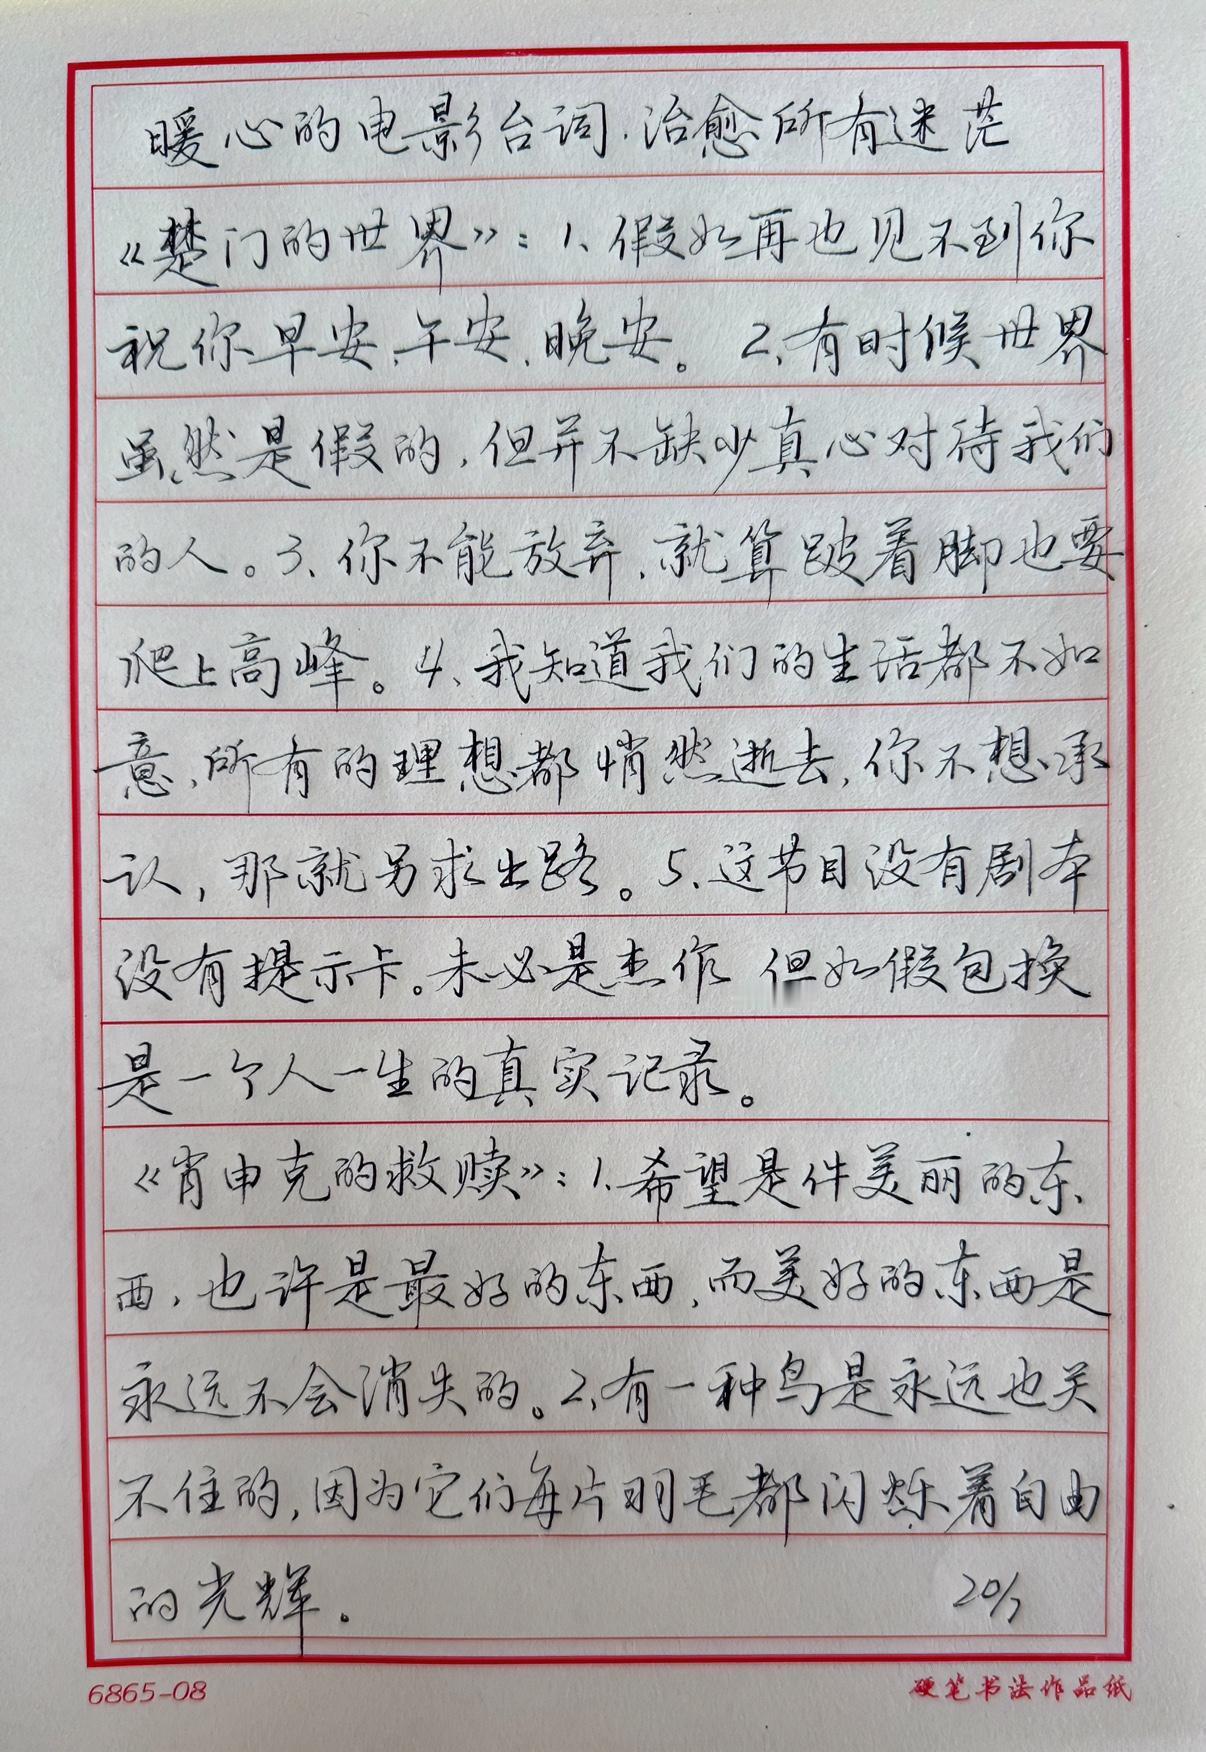 暖心的电影台词.治愈所有迷茫
《楚门的世界》:1、假如再也见不到你
祝你早安、午安、晚安。2、有时候世界
虽然是假的,但并不缺少真心对待我们
的人。3、你不能放弃,就算跛着脚也要
爬上高峰。4、我知道我们的生活都不如
意,所有的理想都悄然逝去,你不想承
认,那就另求出路。5、这节目没有剧本
没有提示卡。未必是杰作 但如假包换
是一个人一生的真实记录。
《肖申克的救赎》:1、希望是件美丽的东
西,也许是最好的东西,而美好的东西是
永远不会消失的。2、有一种鸟是永远也关
不住的,因为它们每片羽毛都闪烁着自由
的光辉。 20/7
6865-08 硬笔书法作品纸